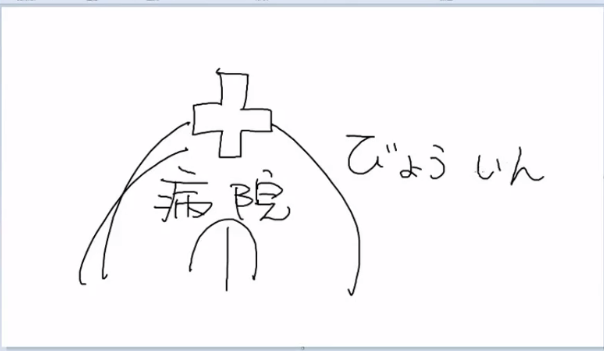 病院
びょういん